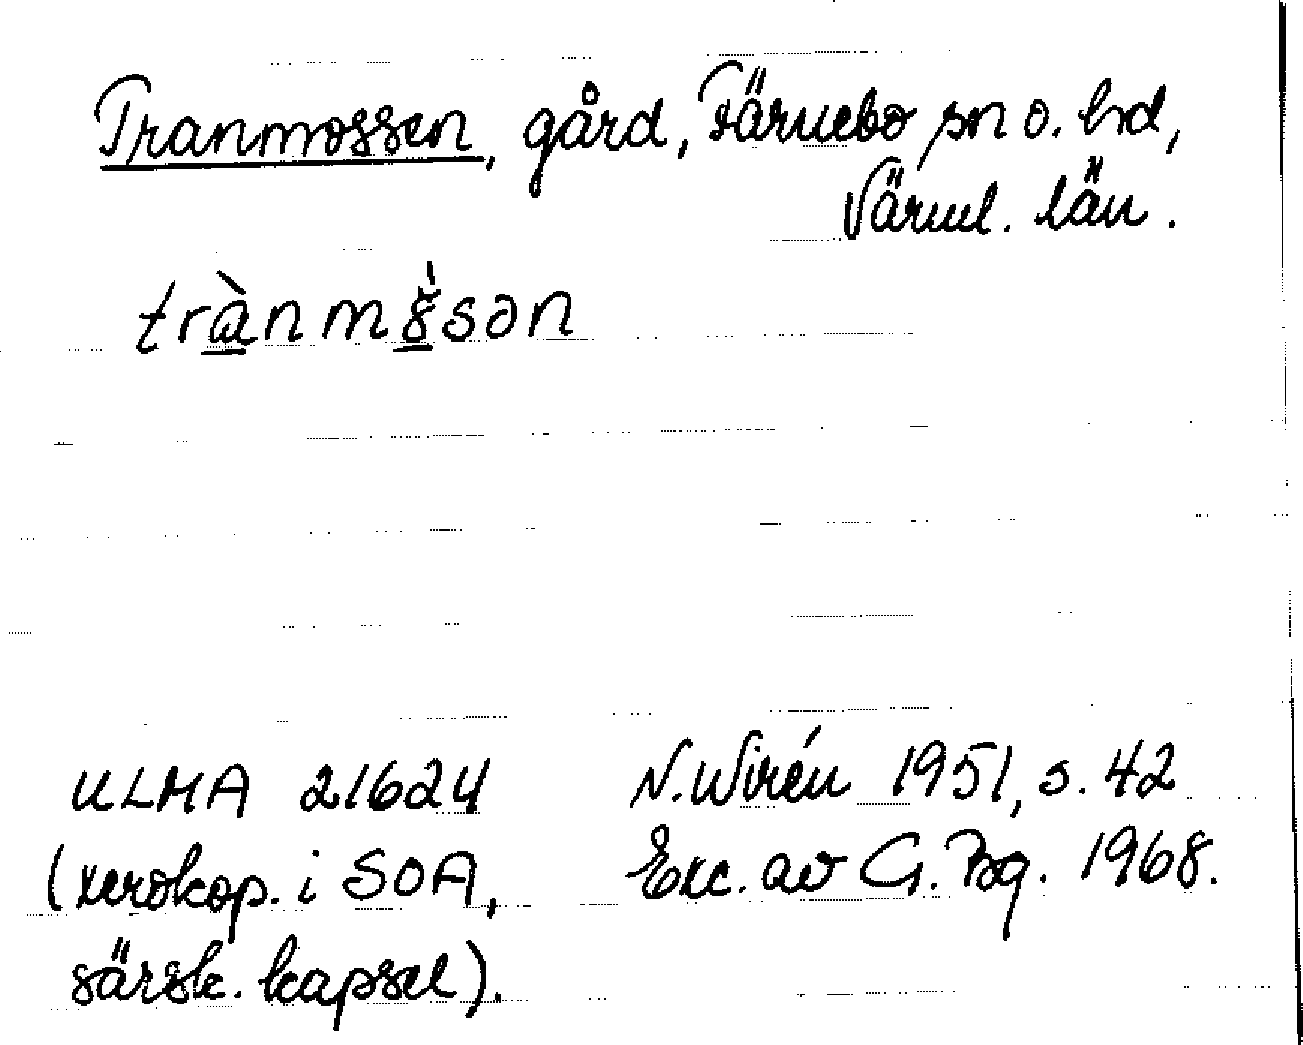 Tranmossen, gård, Färnebo sn o. hd,
Värml. län.
trà̠nmo̠̍sən
ULMA 21624
(xerokop. i SOA,
särsk. kapsel).
N. Wirén 1951, s. 42
Exc. av G. Bg. 1968.